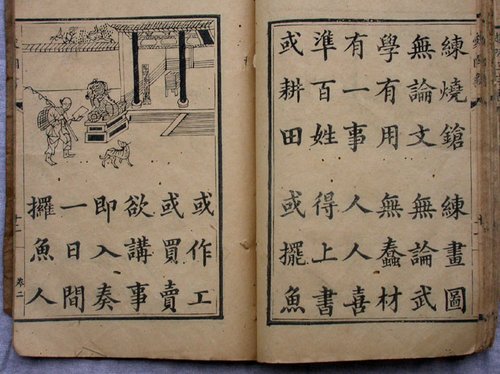 練燒鎗 練畫圖
無論文 無論武
學有用 無蠢材
有一事 人人喜
準百姓 得上書
或耕田 或擺魚
或作工
或買賣
欲講事
即入奏
一日間
攞魚人
卷二